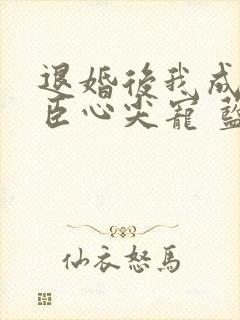 退婚後我成
臣心尖寵 藍
仙衣怒馬